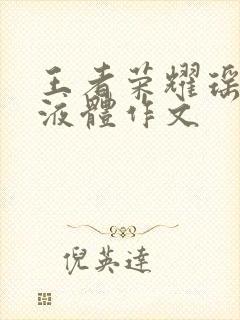 王者荣耀瑶
液體作文
倪英達